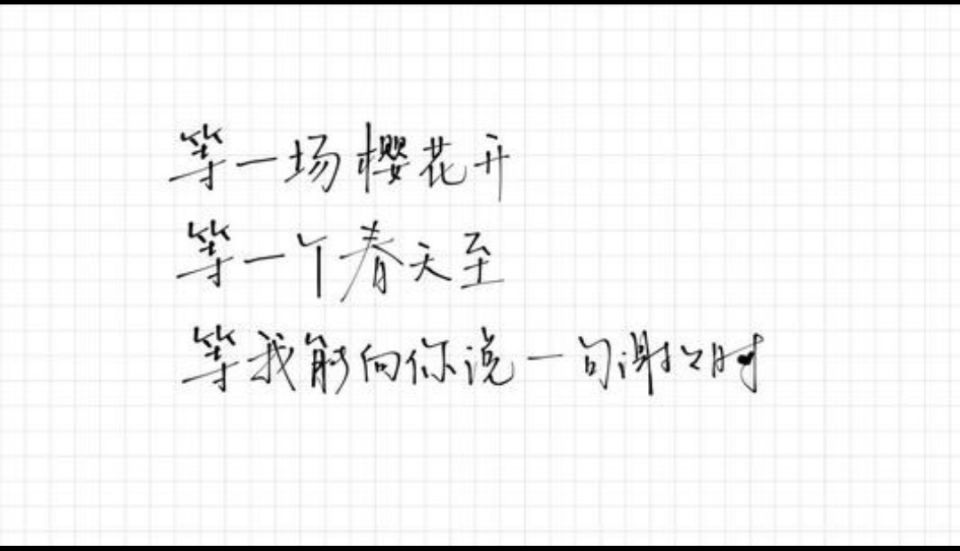 等一场樱花开
等一个春天至
等我能向你说一句谢谢时